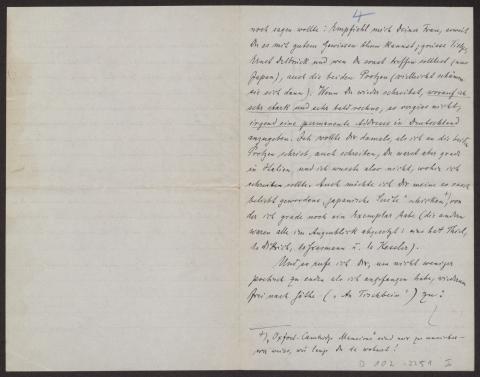 4
noch sagen wollte: Empfiehl mich Deiner Frau, soweit
Du es mit gutem Gewissen thun kannst; grüsse Tietz,
Ernst Delbrück und wen Du sonst treffen solltest (aus
Japan), auch die beiden Protzen (vielleicht schämen
sie sich dann). Wenn Du wieder schreibst, worauf ich
sehr stark und sehr bald rechne, so vergiss nicht,
irgend eine permanente Address in Deutschland
anzugeben. Ich wollte Dir damals, als ich an die beiden
Protzen schrieb, auch schreiben, Du warst aber grade
in Italien, und ich wusste aber nicht, wohin ich
schreiben sollte. Auch möchte ich Dir meine so rasch
beliebt gewordene "japanische Suite" schicken +) von
der ich grade noch ein Exemplar habe (die andern
waren alle im Augenblick abgesetzt: eins hat Thiel,
1 Dittrich, 1 u. 1 Kessler).
Und so rufe ich Dir, um nicht weniger
poetisch zu enden als ich angefangen habe, wiederum
frei nach Göthe ("An Tischbein") zu:
+) "Oxford-Cambridge Mansions" sind nur zu
wie lange Du da wohnst!